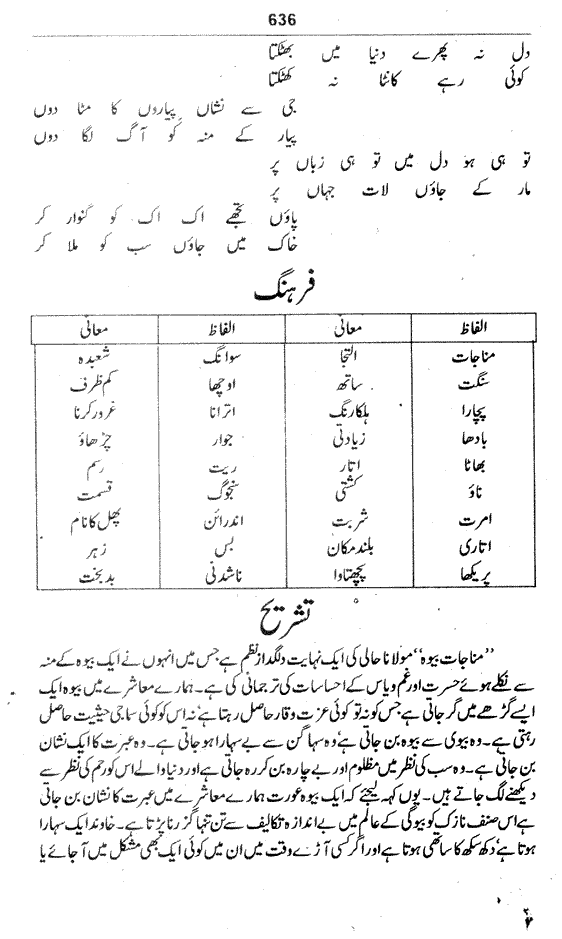 636
دل نہ پھرے دنیا میں بھٹکتا
کوئی رہے کانٹا نہ کھٹکتا
جی سے نشاں پیاروں کا مٹا دوں
پیار کے منہ کو آگ لگا دوں
تو ہی ہو دل میں تو ہی زباں پر
مار کے جاؤں لات جہاں پر
پاؤں تجھے اک اک کو گنوار کر
خاک میں جاؤں سب کو ملا کر
فرہنگ
الفاظ معانی الفاظ معانی
مناجات التجا سوانگ شعبدہ
سنگت ساتھ اوچھا کم ظرف
پچارا ہلکا رنگ اترانا غرور کرنا
بادھا زیادتی جوار چڑھاؤ
بھاٹا اتار ریت رسم
ناؤ کشتی سنجوگ قسمت
امرت شربت اندرائن پھل کا نام
اتاری بلند مکان بس زہر
پریکھا پچھتاوا ناشدنی بدبخت
تشریح
”مناجات بیوہ“ مولانا حالی کی ایک نہایت دلگداز نظم ہے جس میں انہوں نے ایک بیوہ کے منہ
سے نکلے ہوئے حسرت اور غم و یاس کے احساسات کی ترجمانی کی ہے۔ ہمارے معاشرے میں بیوہ ایک
ایسے گڑھے میں گر جاتی ہے جس کو نہ تو کوئی عزت و وقار حاصل رہتا ہے‘ نہ اس کو کوئی سماجی حیثیت حاصل
رہتی ہے۔ وہ بیوی سے بیوہ بن جاتی ہے‘ وہ سہاگن سے بے سہارا ہو جاتی ہے۔ وہ عبرت کا ایک نشان
بن جاتی ہے۔ وہ سب کی نظر میں مظلوم اور بے چارہ بن کر رہ جاتی ہے اور دنیا والے اس کو رحم کی نظر سے
دیکھنے لگ جاتے ہیں۔ یوں کہہ لیجئے کہ ایک بیوہ عورت ہمارے معاشرے میں عبرت کا نشان بن جاتی
ہے اس صنف نازک کو بیوگی کے عالم میں بے اندازہ تکالیف سے تن تنہا گزرنا پڑتا ہے۔ خاوند ایک سہارا
ہوتا ہے‘ دکھ سکھ کا ساتھی ہوتا ہے اور اگر کسی آڑے وقت میں ان میں کوئی ایک بھی مشکل میں آ جائے یا